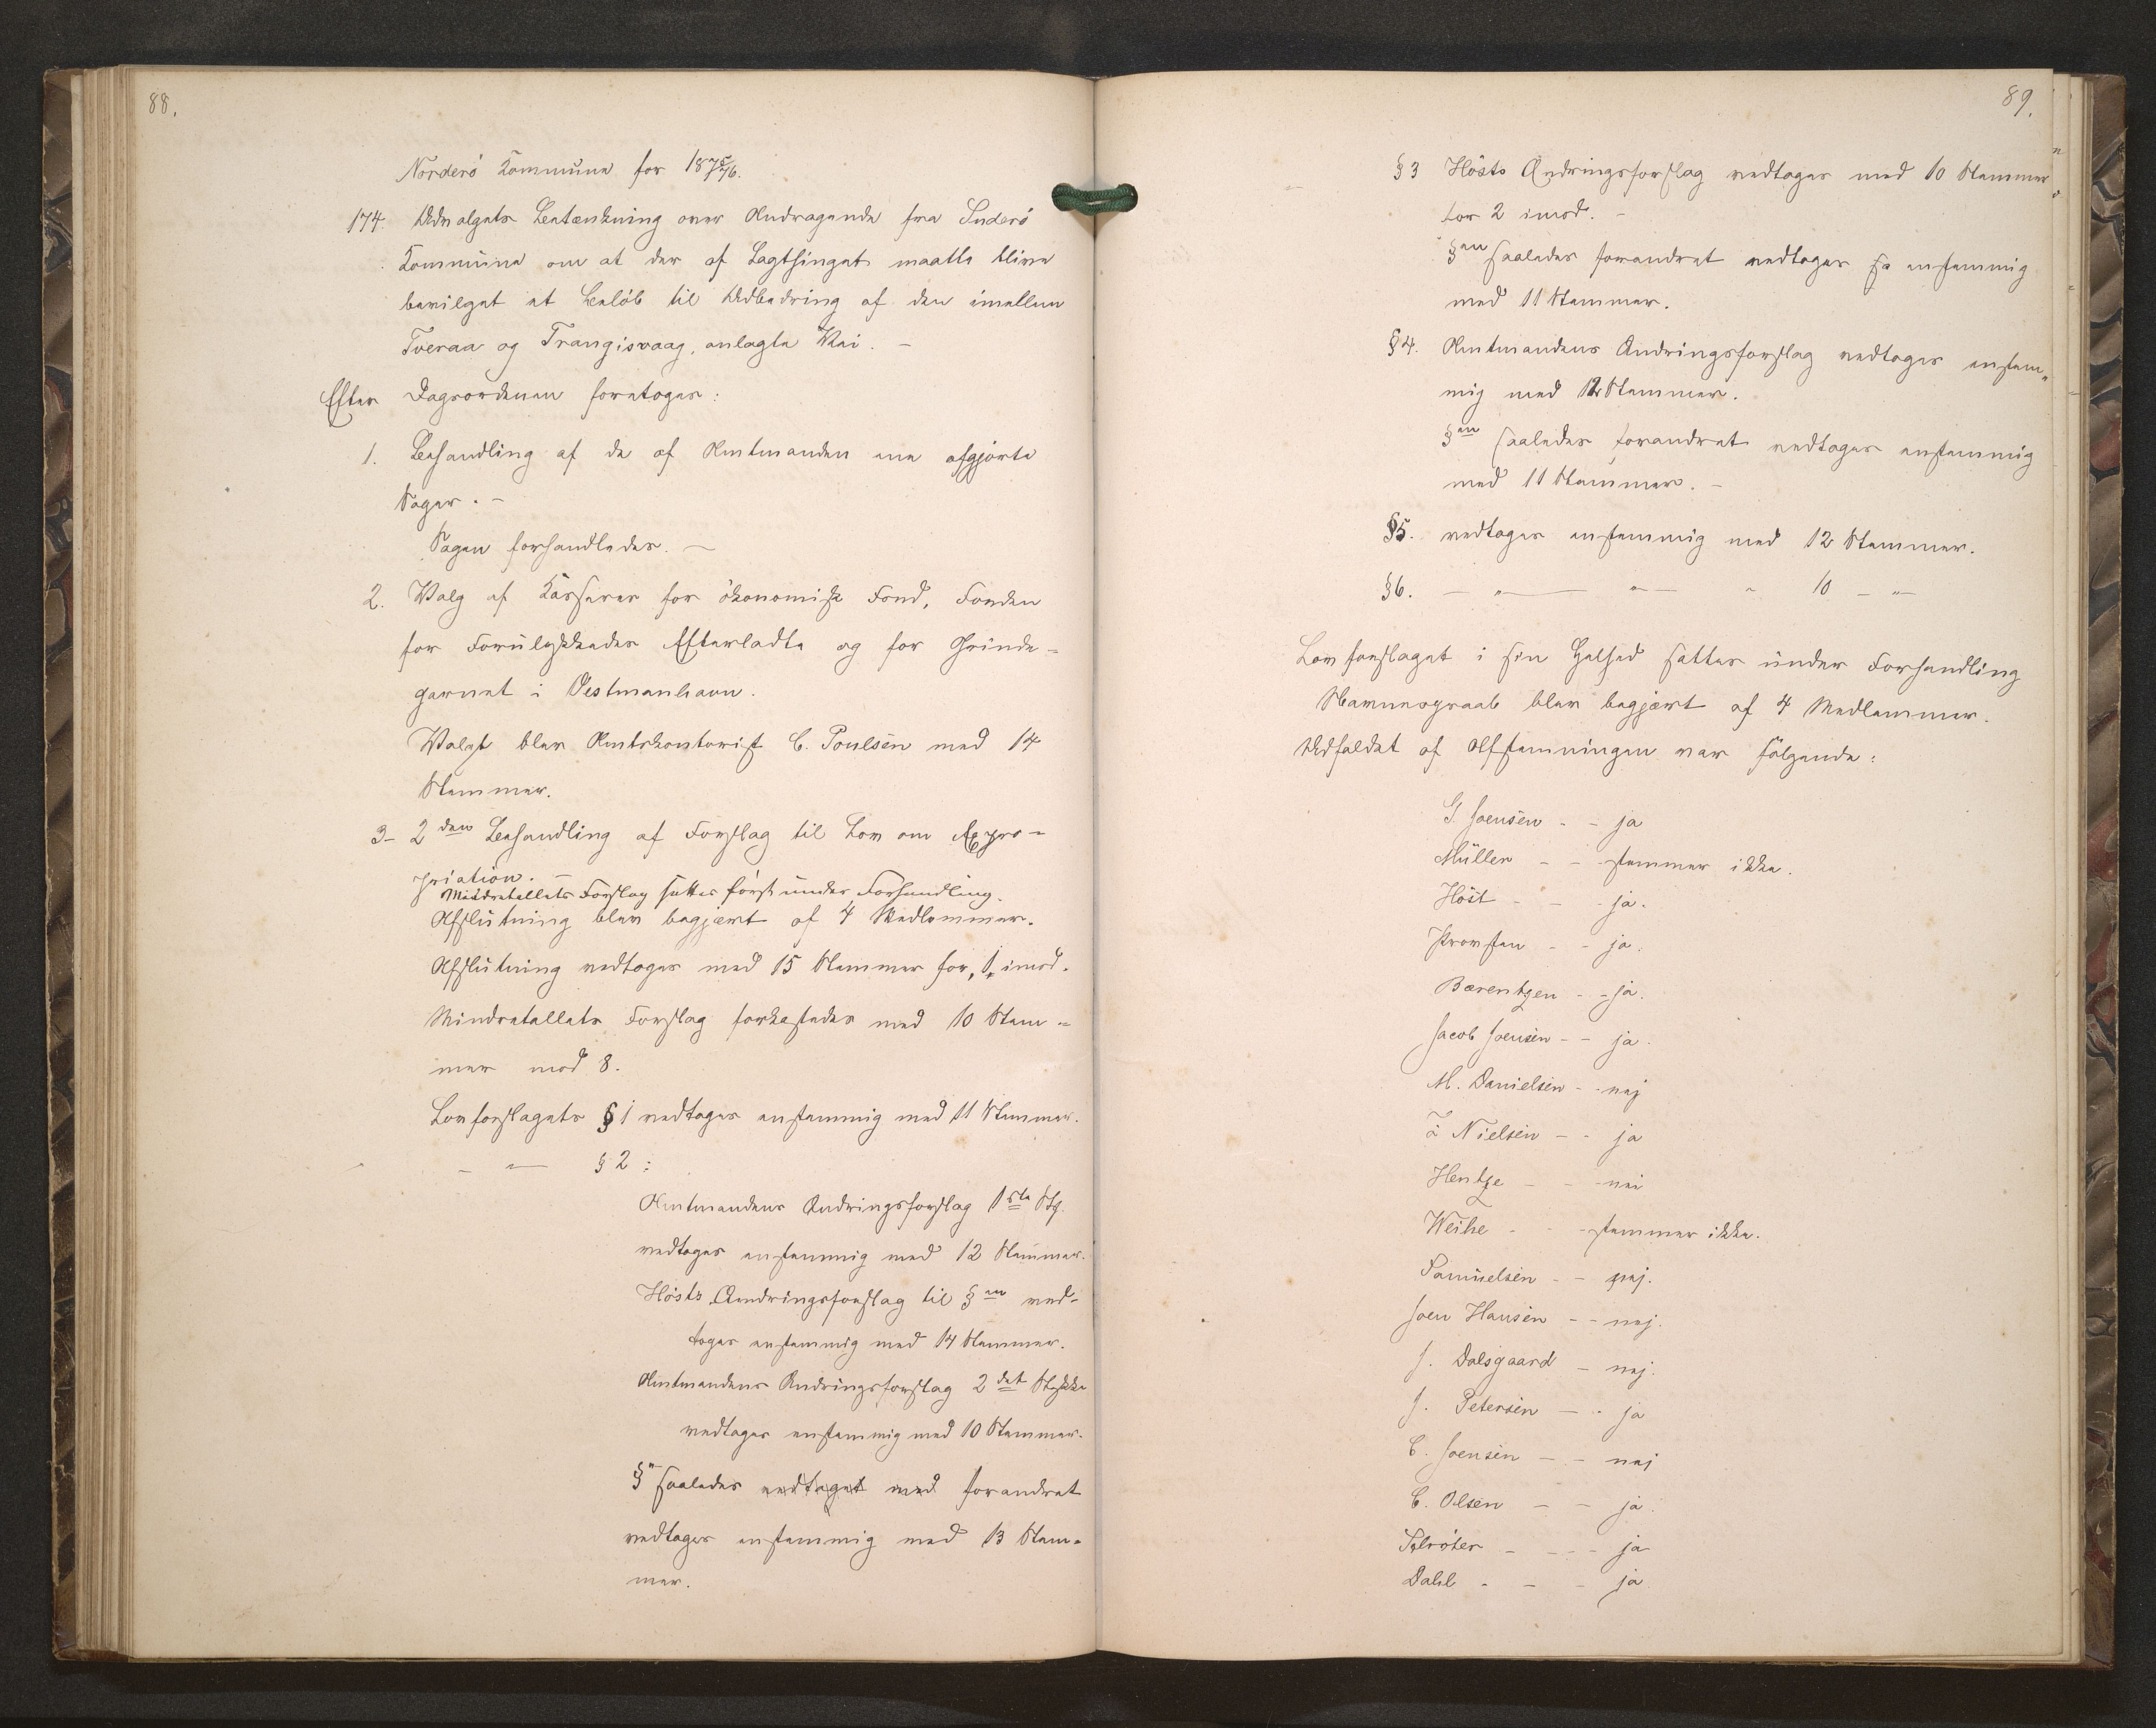 88.
Norderö Kommune for 1875/76.
174. Udvalgets Betænkning over Andragende fra Suderö
Kommune om at der af Lagthinget maatte blive
bevilget et Beløb til Udbedring af den imellem
Tveraa og Trangisvaag, anlagte Vei. –
Efter Dagsordenen foretoges:
1. Behandling af de af Amtmanden ene afgjorte
Sager. –
Sagen forhandledes. –
2. Valg af Kasserer for ökonomisk Fond, Fonden
for Forulykkedes Efterladte og for Grinde-
garnet i Vestmanhavn.
Valgt blev Amtskontorist C. Poulsen med 14
Stemmer.
3– 2den Behandling af Forslag til Lov om Expro-
priation. –
Mindretallets Forslag sattes først under Forhandling.
Afslutning blev begjært af 4 Medlemmer.
Afslutning vedtoges med 15 Stemmer for, 1, imod.
Mindretallets Forslag forkastedes med 10 Stem-
mer mod 8.
Lovforslagets § 1 vedtoges enstemmig med 11 Stemmer.
– " – § 2 :
Amtmandens Ændringsforslag 1ste Stk.
vedtoges enstemmig med 12 Stemmer.
Høsts Ændringsforslag til §en ved-
toges enstemmig med 14 Stemmer.
Amtmandens Ændringsforslag 2det Stykke
vedtoges enstemmig med 10 Stemmer.
§en saaledes vedtaget med forandret
vedtoges enstemmig med 13 Stem-
mer.
89.
§ 3 Høsts Ændringsforslag vedtoges med 10 Stemmer
for 2 imod. –
§en saaledes forandret vedtoges enstemmig
med 11 Stemmer.
§ 4. Amtmandens Ændringsforslag vedtoges enstem-
mig med 12 Stemmer.
§en saaledes forandret vedtoges enstemmig
med 11 Stemmer. –
§ 5. vedtoges enstemmig med 12 Stemmer.
§ 6. – " – " – " 10 – " –
Lovforslaget i sin Helhed sattes under Forhandling
Navneopraab blev begjært af 4 Medlemmer.
Udfaldet af Afstemningen var følgende:
G. Joensen - - ja
Müller - - stemmer ikke.
Höst - - - ja.
Provsten - - ja.
Bærentzen - - ja.
Jacob Joensen - - ja.
M. Danielsen - - nej
à Nielsen - - ja
Hentze - - - nei
Weihe - - - stemmer ikke.
Samuelsen - - nej.
Joen Hansen - - nej.
J. Dalsgaard - nej.
J. Petersen - - ja
C. Joensen - - nej
C. Olsen - - ja
Schröter - - - - ja
Dahl - - - ja